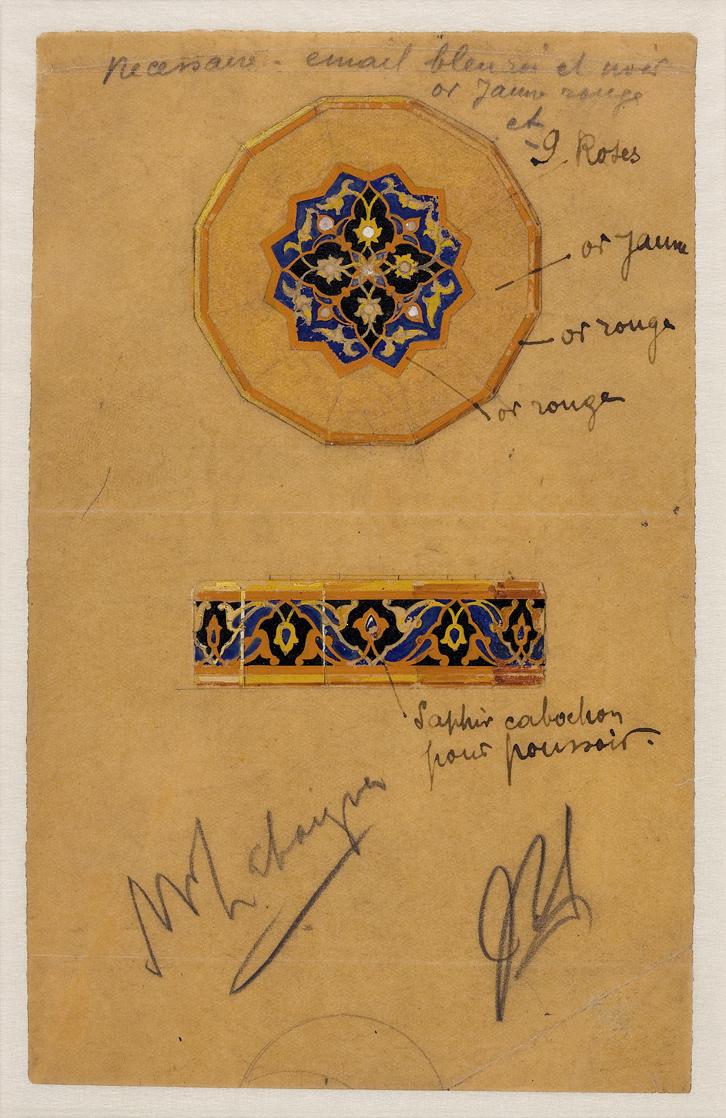 necessaire - email bleu roi et noir
or Jaune rouge
et
9 Roses
or Jaune
or rouge
or rouge
Saphir cabochon
pour poussoir.